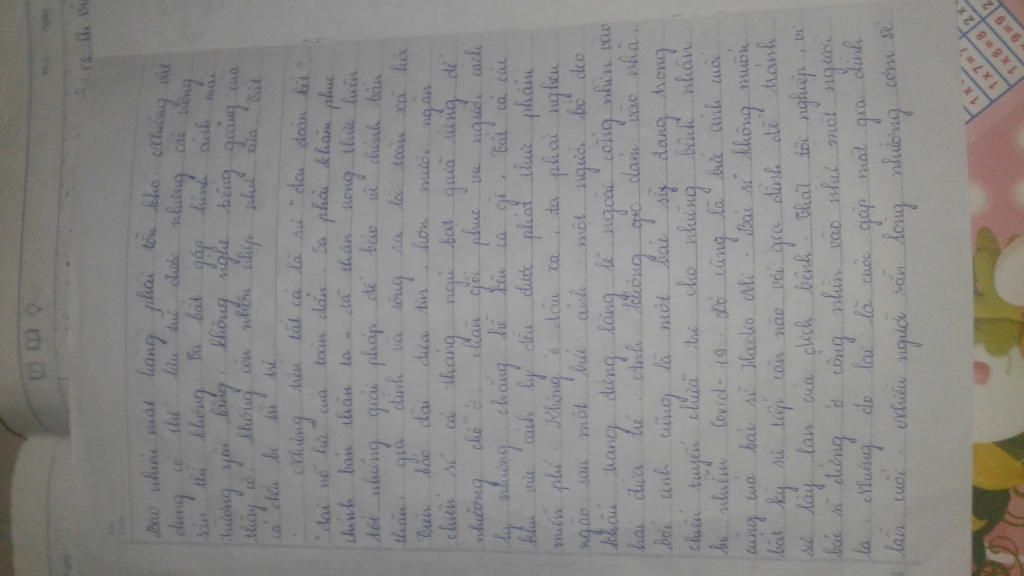 bao nhiêu mặt hàng phải tồn kho. Những vật
dụng có thể lưu trữ được nhưng cái nông
sản thì không. Ta bắt gặp hình ảnh mái
trường yên lặng, không nghe tiếng giảng của
thầy cô, không còn nhộn nhịp như xưa. Tất
cả đều bị trì trệ
Nhưng trên tất cả là sự "đại đoàn kết".
"sự nổ lực" của toàn dân. Ta phải khâm phục
chính bản thân ta - cá thân nong thức hiện
tốt những giải pháp để bảo vệ chính bản
thân, gia đình và rộng ra là toàn xã hội
Trên báo đài đưa tin, hơn mười ngàn
chiến sĩ cả tháng ngủ bạt giữa rừng để
nhường chỗ ở, chăn gối phục vụ người cách
ly nhưng chẳng hề kêu ca gì. Tất cả các
khu vực cách ly đều được phát thức phẩm
miễn phí. Không ở đâu xa, ta phải nghẹn
ngào sau một bức ảnh một người bố đeo
khẩu trang đứng lặng lẽ ngoài cổng nhìn vào
hai đứa trẻ. Anh không dám vào nhà,
bởi anh cũng là một bác sỹ đang trong
chiến tuyến chữa trị cho những bệnh nhân
bị nhiễm Covid-19. Đó cũng là bức ảnh cuối
cùng của bác sĩ Hadio Ali. Bác sĩ không muốn
bất kỳ sự tiếp cận nào với gia đình để tránh
sự lây lan của dịch bệnh. Thật tội nghiệp, vị
bác sĩ đứng ở cổng nhìn vào như một người
lạ. Nhưng đó lại là cuộc gặp mặt gia đình
lần cuối. Nhiều người sẵn lòng nhường cơm sẻ
1x7=7
1x8=8